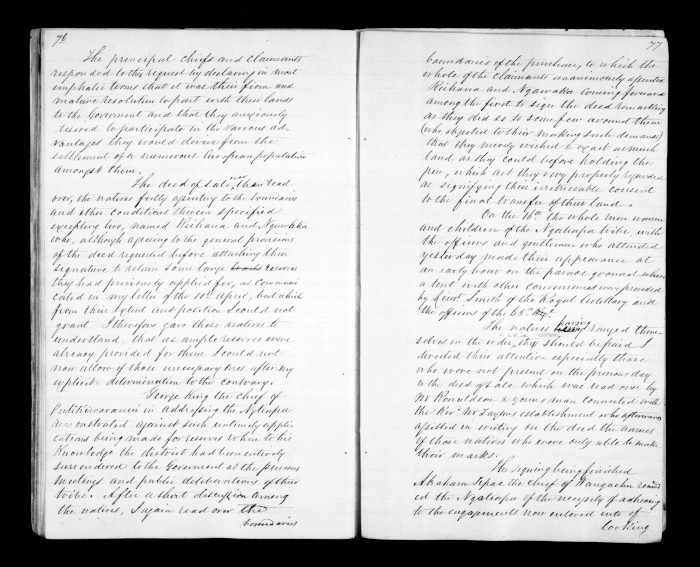 76
The principal chiefs and claimants
responded to this request by declaring in most
emphatic terms that it was their firm and
mature resolution to part with their lands
to the Government and that they anxiously
desired to participate in the various ad-
vantages they would derive from the
settlement of a numerous European population
amongst them.
The deed of sale was then read
over, the natives fully assenting to the boundaries
and other conditions therein specified
excepting two, named Reihana and Ngawaka
who, although agreeing to the general provisions
of the deed requested before attaching their
signature to retain some large reserves
they had previously applied for, as communi-
cated in my letter of the 10th April, but which
from their extent and position I could not
grant. I therefore gave these natives to
understand, that as ample reserves were
already provided for them I could not
now allow of those unnecessary ones after my
explicit determination to the contrary.
George King the chief of
Putikiwaranui in addressing the Ngatiapa
remonstrated against such untimely appli-
cations being made for reserves when to his
Knowledge the district had been entirely
surrendered to the Government at the previous
meetings and public deliberations of their
tribe. After a short discussion among
the natives, I again read over the
boundaries
77
boundaries of the purchase, to which the
whole of the claimants unanimously assented
Reihana and Ngawaka coming forward
among the first to sign the deed remarking
as they did so to some few around them
(who objected to their making such demands)
that they merely wished to exact as much
land as they could before holding the
pen, which act they very properly regarded
as signifying their irretrievable consent
to the final transfer of their land.
On the 16th the whole men women
and children of the Ngatiapa tribe, with
the officers and gentlemen who attended
yesterday made their appearance at
an early hour on the parade ground where
a tent with other conveniences was provided
by Lieut. Smith of the Royal Artillery and
the officers of the 65th Regt.
The natives having ranged them-
selves in the order they should be paid I
directed their attention especially those
who were not present on the previous day
to the deed of sale which was read over by
Mr Ronaldson a young man connected with
the Revd. Mr Taylors establishment who afterwards
assisted in writing on the deed the names
of those natives who were only able to make
their marks.
The signing being finished
Abraham Tipae the chief of Wangaehu remind-
ed the Ngatiapa of the necessity of adhering
to the engagements now entered into of
looking